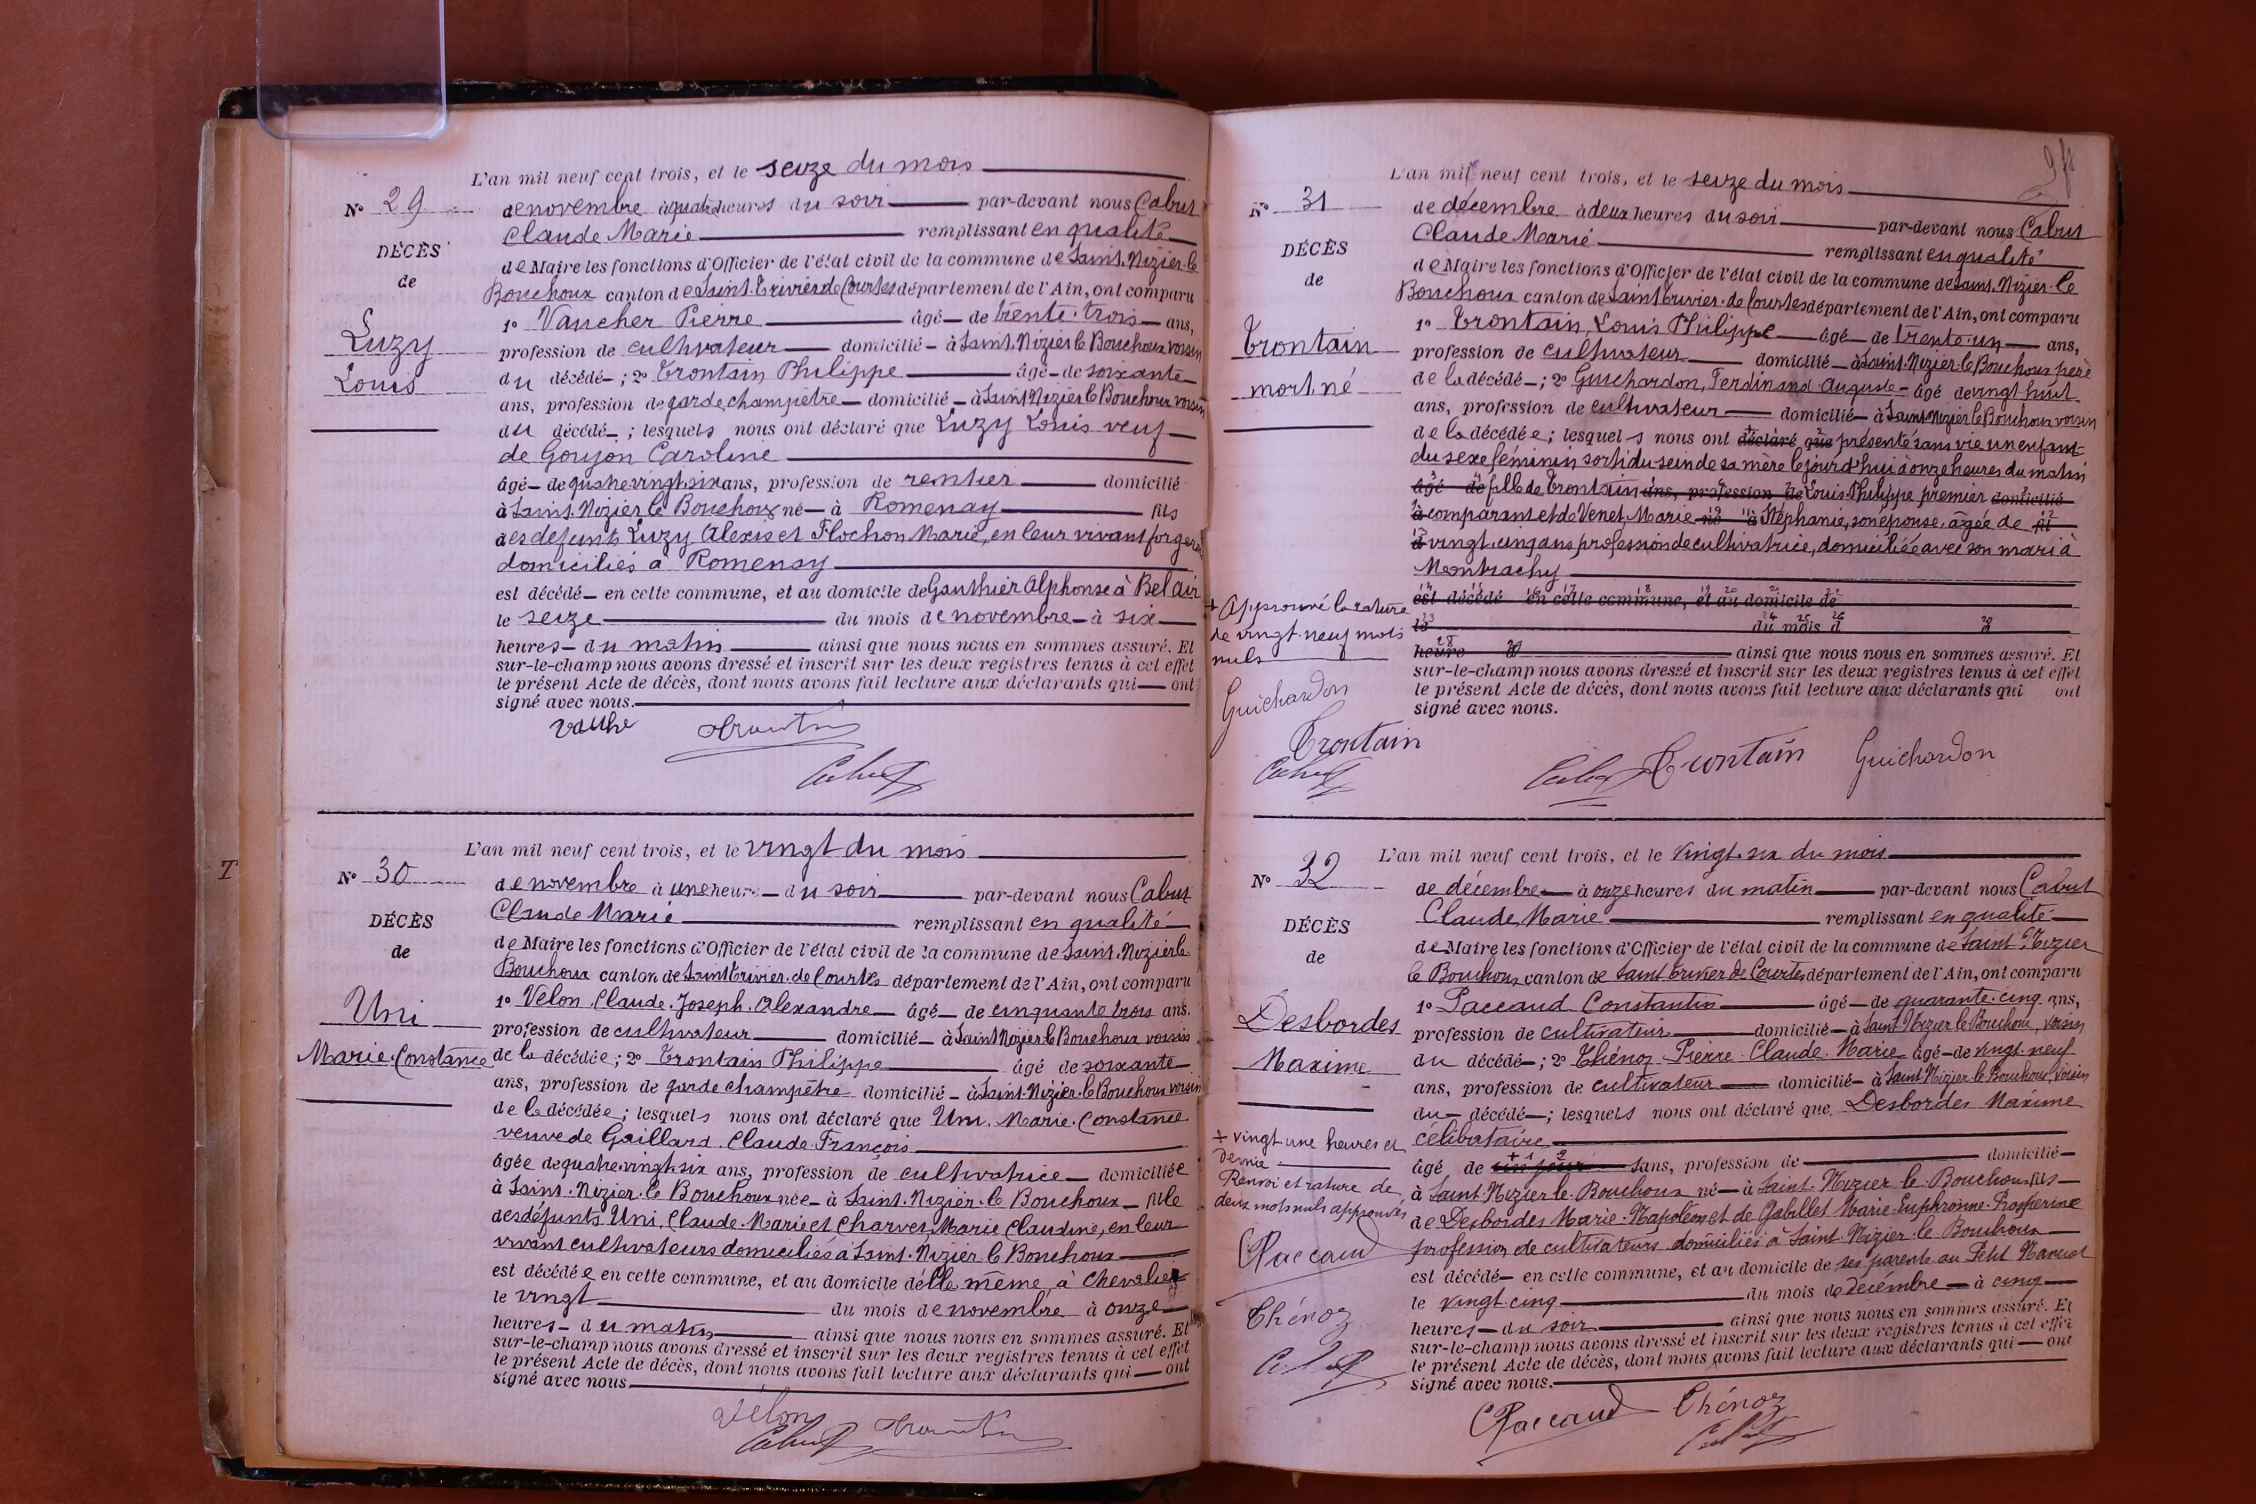 L'an mil neuf cent trois, et le seize du mois
N° 29
de novembre à quatre heures du soir par-devant nous Cabut
Claude Marie remplissant en qualité
DÉCÈS
de Maire les fonctions d'Officier de l'état civil de la commune de Saint-Nizier-le
de
Bouchoux canton de Saint-Trivier de Courtes département de l'Ain, ont comparu
1° Vaucher Pierre âgé de trente-trois ans,
Luzy
profession de cultivateur domicilié à Saint-Nizier le Bouchoux voisin
Louis
du décédé ; 2° Trontain Philippe âgé de soixante
ans, profession de garde champêtre domicilié à Saint Nizier le Bouchoux voisin
du décédé ; lesquels nous ont déclaré que Luzy Louis veuf
de Goujon Caroline
âgé de quatre vingt six ans, profession de rentier domicilié
à Saint-Nizier le Bouchoux né à Romenay fils
des défunts Luzy Alexis et Flochon Marie, en leur vivant forgerons
domiciliés à Romenay
est décédé en cette commune, et au domicile de Gauthier Alphonse à Bel air
le seize du mois de novembre à six
heures du matin ainsi que nous nous en sommes assuré. Et
sur-le-champ nous avons dressé et inscrit sur les deux registres tenus à cet effet
le présent Acte de décès, dont nous avons fait lecture aux déclarants qui ont
signé avec nous.
Vauche Trontain
Cabut
L'an mil neuf cent trois, et le vingt du mois
N° 30
de novembre à une heure du soir par-devant nous Cabut
Claude Marie remplissant en qualité
DÉCÈS
de Maire les fonctions d'Officier de l'état civil de la commune de Saint-Nizier le
de
Bouchoux canton de Saint Trivier de Courtes département de l'Ain, ont comparu
1° Velon Claude Joseph Alexandre âgé de cinquante trois ans.
Uni
profession de cultivateur domicilié à Saint Nizier le Bouchoux voisin
Marie Constance
de la décédée ; 2° Trontain Philippe âgé de soixante
ans, profession de garde champêtre domicilié à Saint-Nizier-le Bouchoux voisin
de la décédée ; lesquels nous ont déclaré que Uni Marie Constance
veuve de Gaillard Claude François
âgée de quatre vingt six ans, profession de cultivatrice domiciliée
à Saint-Nizier-le Bouchoux née à Saint-Nizier-le Bouchoux fille
des défunts Uni Claude-Marie et Charvet Marie Claudine, en leur
vivant cultivateurs domiciliés à Saint-Nizier le Bouchoux
est décédée en cette commune, et au domicile d'elle même, à Chevalier
le vingt du mois de novembre à onze
heures du matin ainsi que nous nous en sommes assuré. Et
sur-le-champ nous avons dressé et inscrit sur les deux registres tenus à cet effet
le présent Acte de décès, dont nous avons fait lecture aux déclarants qui ont
signé avec nous
Vélon
Cabut Trontain
T
L'an mil neuf cent trois, et le seize du mois
N° 31
de décembre à deux heures du soir par-devant nous Cabut
Claude Marie remplissant en qualité
DÉCÈS
de Maire les fonctions d'Officier de l'état civil de la commune de Saint-Nizier-le
de
Bouchoux canton de Saint Trivier de Courtes département de l'Ain, ont comparu
1° Trontain Louis Philippe âgé de trente-un ans,
Trontain
profession de cultivateur domicilié à Saint-Nizier-le Bouchoux père
mort-né
de la décédé ; 2° Guichardon, Ferdinand Auguste âgé de vingt huit
ans, profession de cultivateur domicilié à Saint Nizier le Bouchoux voisin
de la décédée ; lesquels nous ont déclaré que présenté sans vie un enfant
du sexe féminin sorti du sein de sa mère le jour d'hui à onze heures du matin
âgé de fille de Trontain ans, profession de Louis Philippe premier domicilié
à comparant et de Venet Marie né à Stéphanie, son épouse âgée de fil
d vingt cinq ans profession de cultivatrice, domiciliée avec son mari à
Montrachy
est décédé en cette commune, et au domicile de
le du mois d à
heure d ainsi que nous nous en sommes assuré. Et
sur-le-champ nous avons dressé et inscrit sur les deux registres tenus à cet effet
le présent Acte de décès, dont nous avons fait lecture aux déclarants qui ont
signé avec nous.
+ Approuvé la rature
de vingt-neuf mots
nuls
Guichardon
Trontain
Cabut
Cabut Trontain Guichardon
L'an mil neuf cent trois, et le vingt-six du mois
N° 32
de décembre à onze heures du matin par-devant nous Cabut
Claude Marie remplissant en qualité
DÉCÈS
de Maire les fonctions d'Officier de l'état civil de la commune de Saint Nizier
de
le Bouchoux canton de Saint Trivier de Courtes département de l'Ain, ont comparu
1° Paccaud Constantin âgé de quarante-cinq ans,
Desbordes
profession de cultivateur domicilié à Saint Nizier le Bouchoux, voisin
Maxime
du décédé ; 2° Thénoz Pierre Claude Marie âgé de vingt-neuf
ans, profession de cultivateur domicilié à Saint Nizier le Bouchoux, voisin
du décédé ; lesquels nous ont déclaré que Desbordes Maxime
célibataire
âgé de six jours + ans, profession de domicilié
à Saint-Nizier-le-Bouchoux né à Saint-Nizier-le-Bouchoux fils
de Desbordes Marie-Napoléon et de Gabillet Marie-Euphrosine-Prosperine
profession de cultivateurs domiciliés à Saint-Nizier-le Bouchoux
est décédé en cette commune, et au domicile de ses parents au Petit Manuet
le vingt-cinq du mois de décembre à cinq
heures du soir ainsi que nous nous en sommes assuré. Et
sur-le-champ nous avons dressé et inscrit sur les deux registres tenus à cet effet
le présent Acte de décès, dont nous avons fait lecture aux déclarants qui ont
signé avec nous.
+ vingt-une heures et
demie
Renvoi et rature de
deux mots nuls approuvés
CPaccaud
Thénoz
Cabut
CPaccaud Thénoz
Cabut